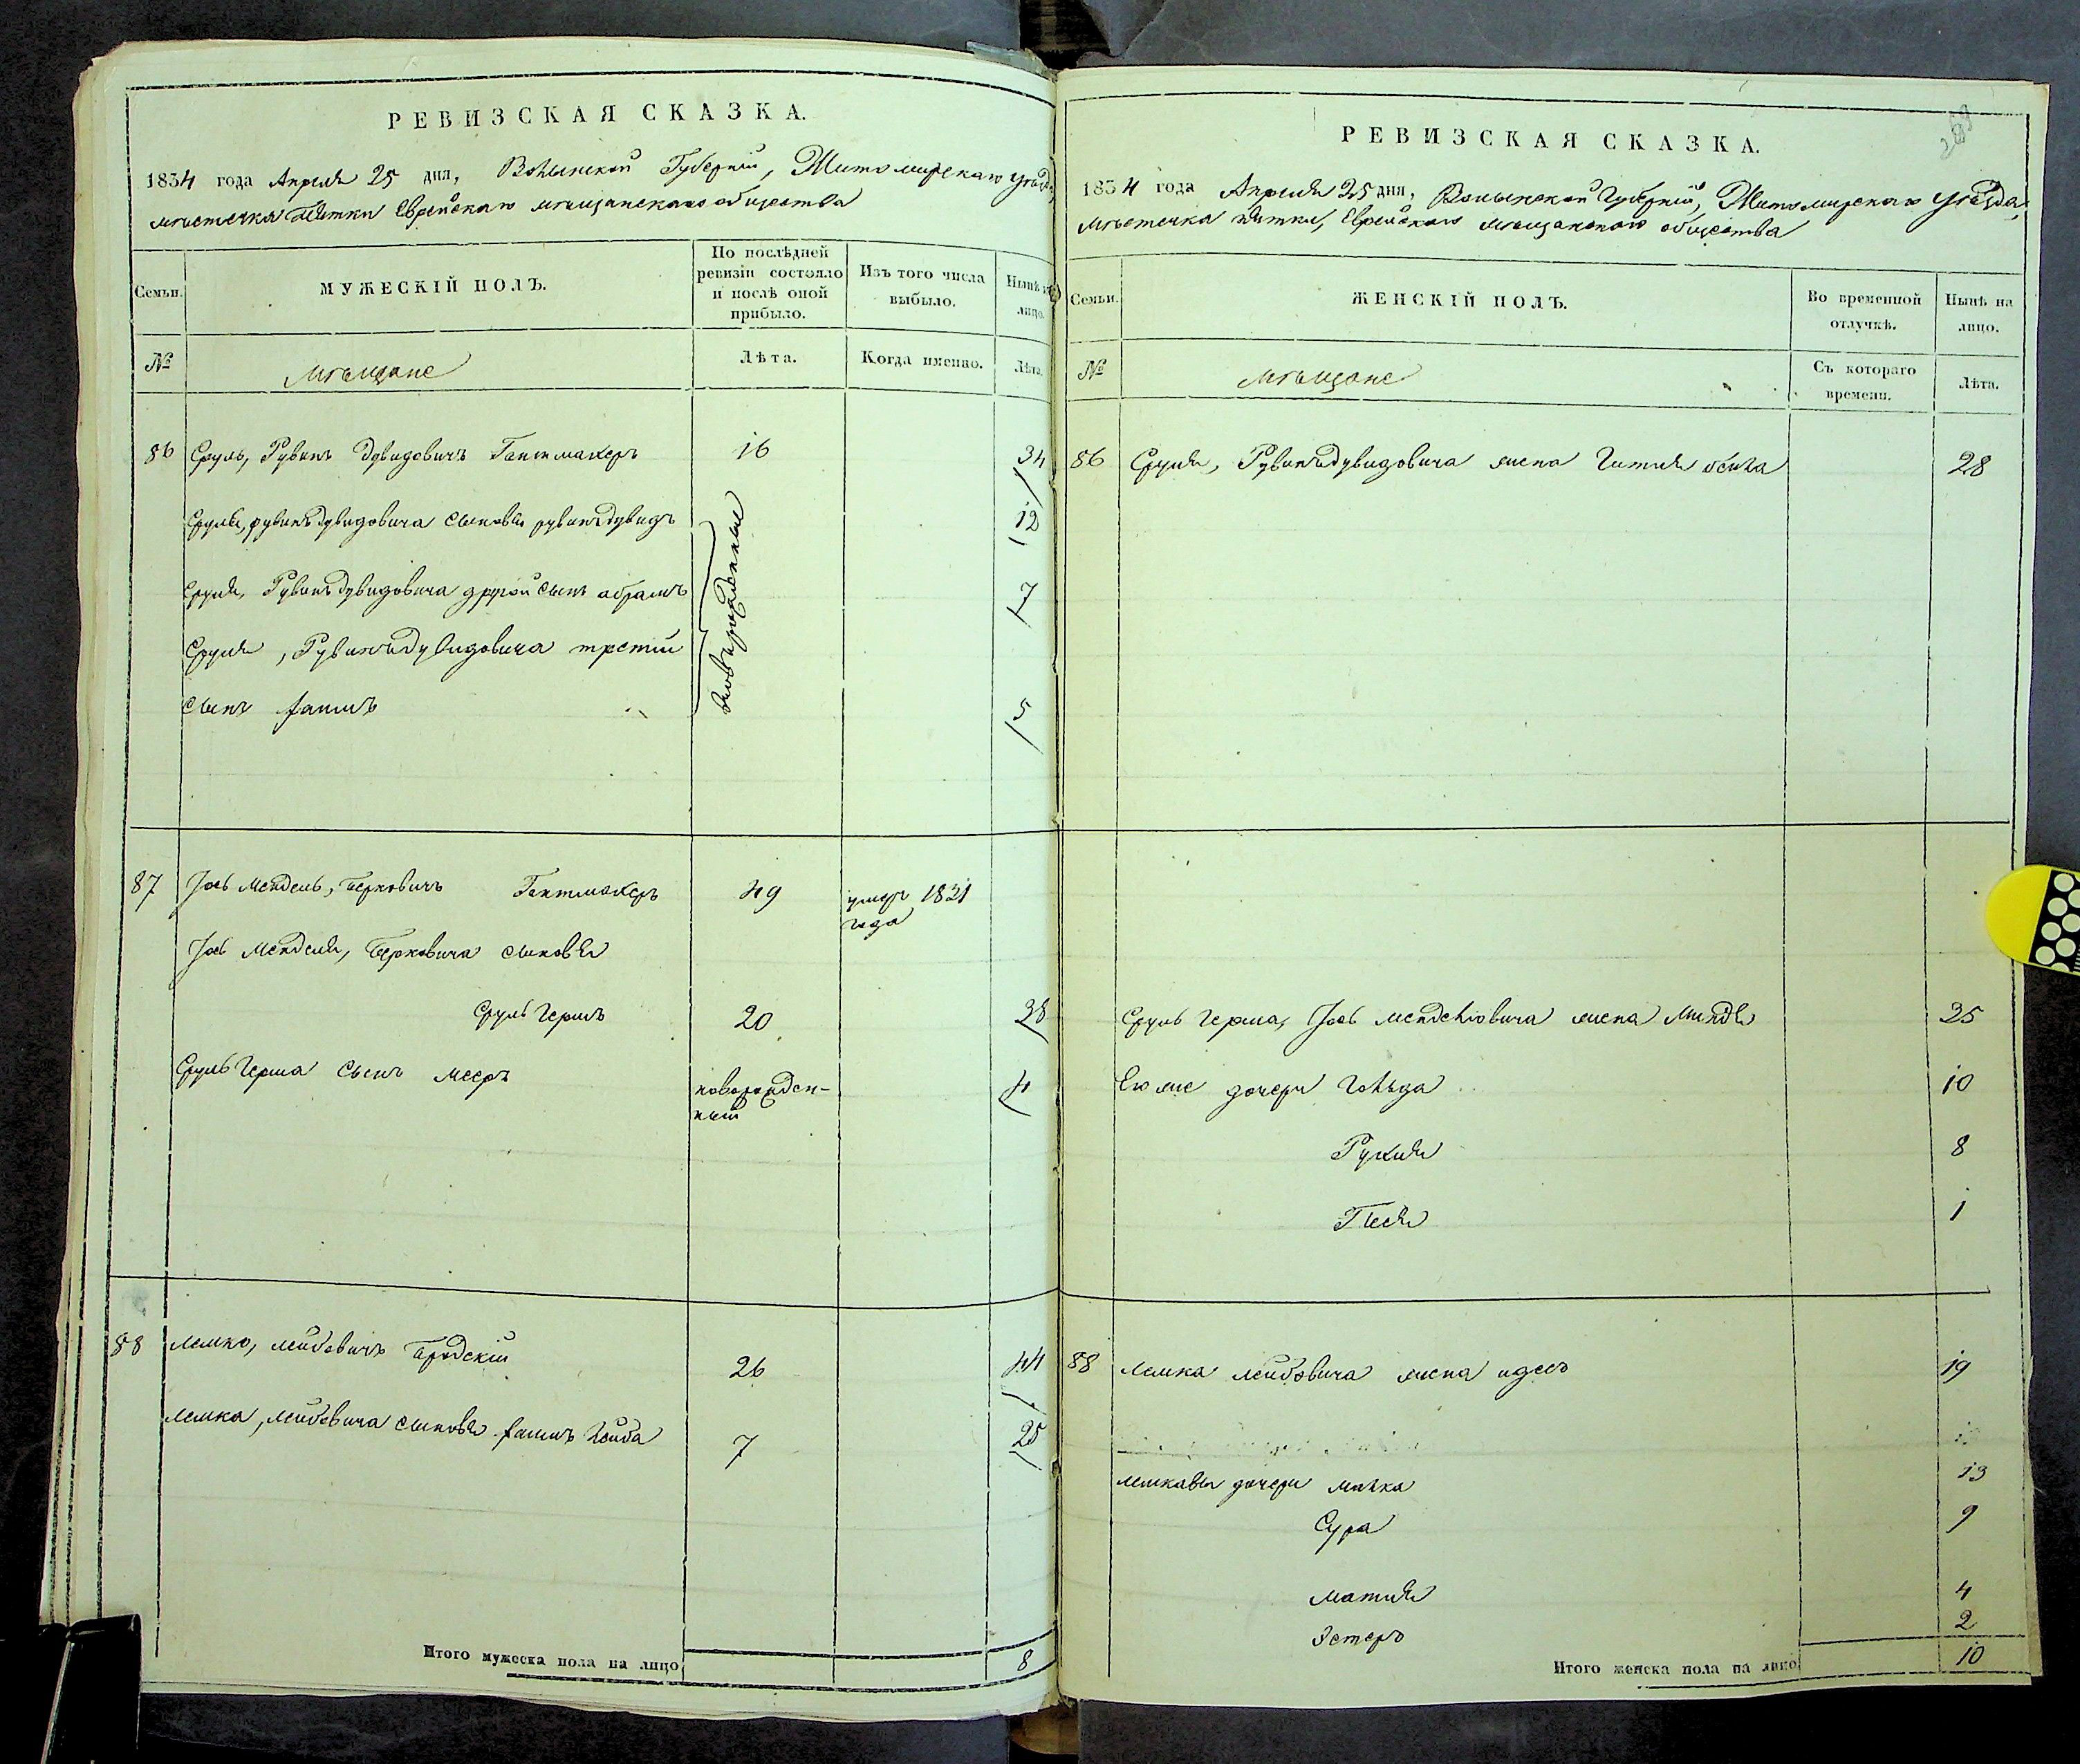 РЕВИЗСКАЯ СКАЗКА.
1834 года Апреля 25 дня, Волынской Губернiи, Житомирскаго уѣзда,
мѣстечка Пятки Еврейскаго мѣщанскаго общества
Семьи.
МУЖЕСКІЙ ПОЛЪ.
По послѣдней ревизіи состояло и послѣ оной прибыло.
Изъ того числа выбыло.
Нынѣ на лицо.
№
Мѣщане
Лѣта.
Когда именно.
Лѣта.
86 Сруль, Рувинъ Дувидовичъ Гантмахеръ 16 34
Сруля, рувинъ дувидовича сыновья рувинъ дувидъ 12
Сруля, Рувинъ дувидовича другой сынъ абрамъ 7
Сруля, Рувинъ дувидовича третiй
сынъ хаимъ 5
новорожденные
87 Іось Мендель, Берковичъ Гантмахеръ 49 умеръ 1831
года
Іось Менделя, Берковича сыновья
Сруль Гершъ 20 38
Сруль Герша сынъ Мееръ новорожден-
ный 4
88 Лемко, лейбовичъ Бродскiй 26 44
Лемка, лейбовича сыновья хаимъ лейба 7 25
Итого мужеска пола на лицо 8
РЕВИЗСКАЯ СКАЗКА.
1834 года Апреля 25 дня, Волынской Губернiи, Житомирскаго уѣзда,
мѣстечка Пятки, Еврейскаго мѣщанскаго общества
Семьи.
ЖЕНСКІЙ ПОЛЪ.
Во временной отлучкѣ.
Нынѣ на лицо.
№
Мѣщане
Съ котораго времени.
Лѣта.
86 Сруля, Рувинъ дувидовича жена Гитля 28
Сруль Герша, Іось менделовича жена Миндя 35
Ево же дочери Гольда 10
Рухля 8
Песя 1
88 Лемка лейбовича жена идесъ 19
лемкавы дочери малка 13
Сура 9
матля 4
Эстеръ 2
Итого женска пола на лицо 10